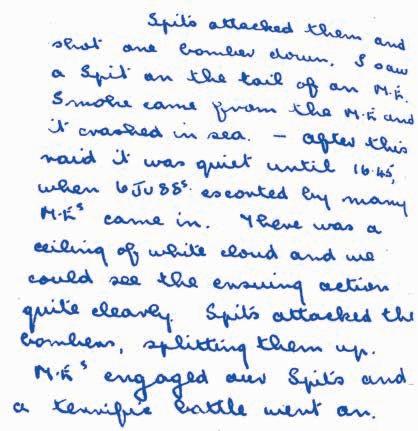 Spits attacked them and
shot one bomber down. I saw
a Spit on the tail of an M.E.
Smoke came from the M.E and
it crashed in sea. — After this
raid it was quiet until 16.45,
when 6 JU 88s. escorted by many
M.Es came in. There was a
ceiling of white cloud and we
could see the ensuing action
quite clearly. Spits attacked the
bombers, splitting them up.
M.Es engaged our Spits and
a terrific battle went on.